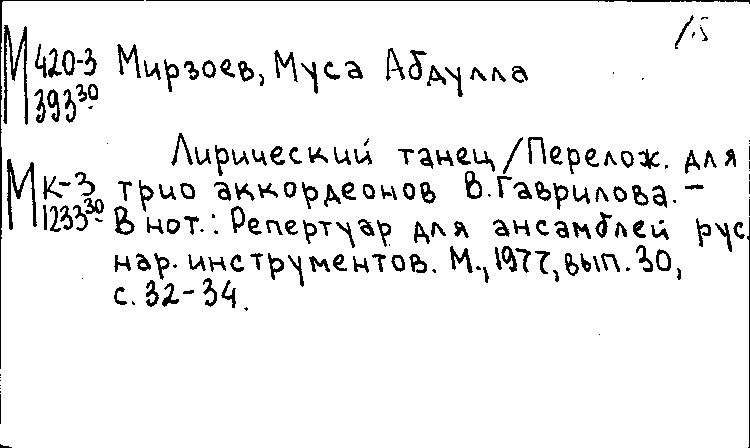 1.5
М 420-3 Мирзоев, Муса Абдулла
393 30
Лирический танец / Перелож. для
М К-3 трио аккордеонов В. Гаврилова. –
1233 30 В нот.: Репертуар для ансамблей рус.
нар. инструментов. М., 1977, вып. 30,
с. 32-34.